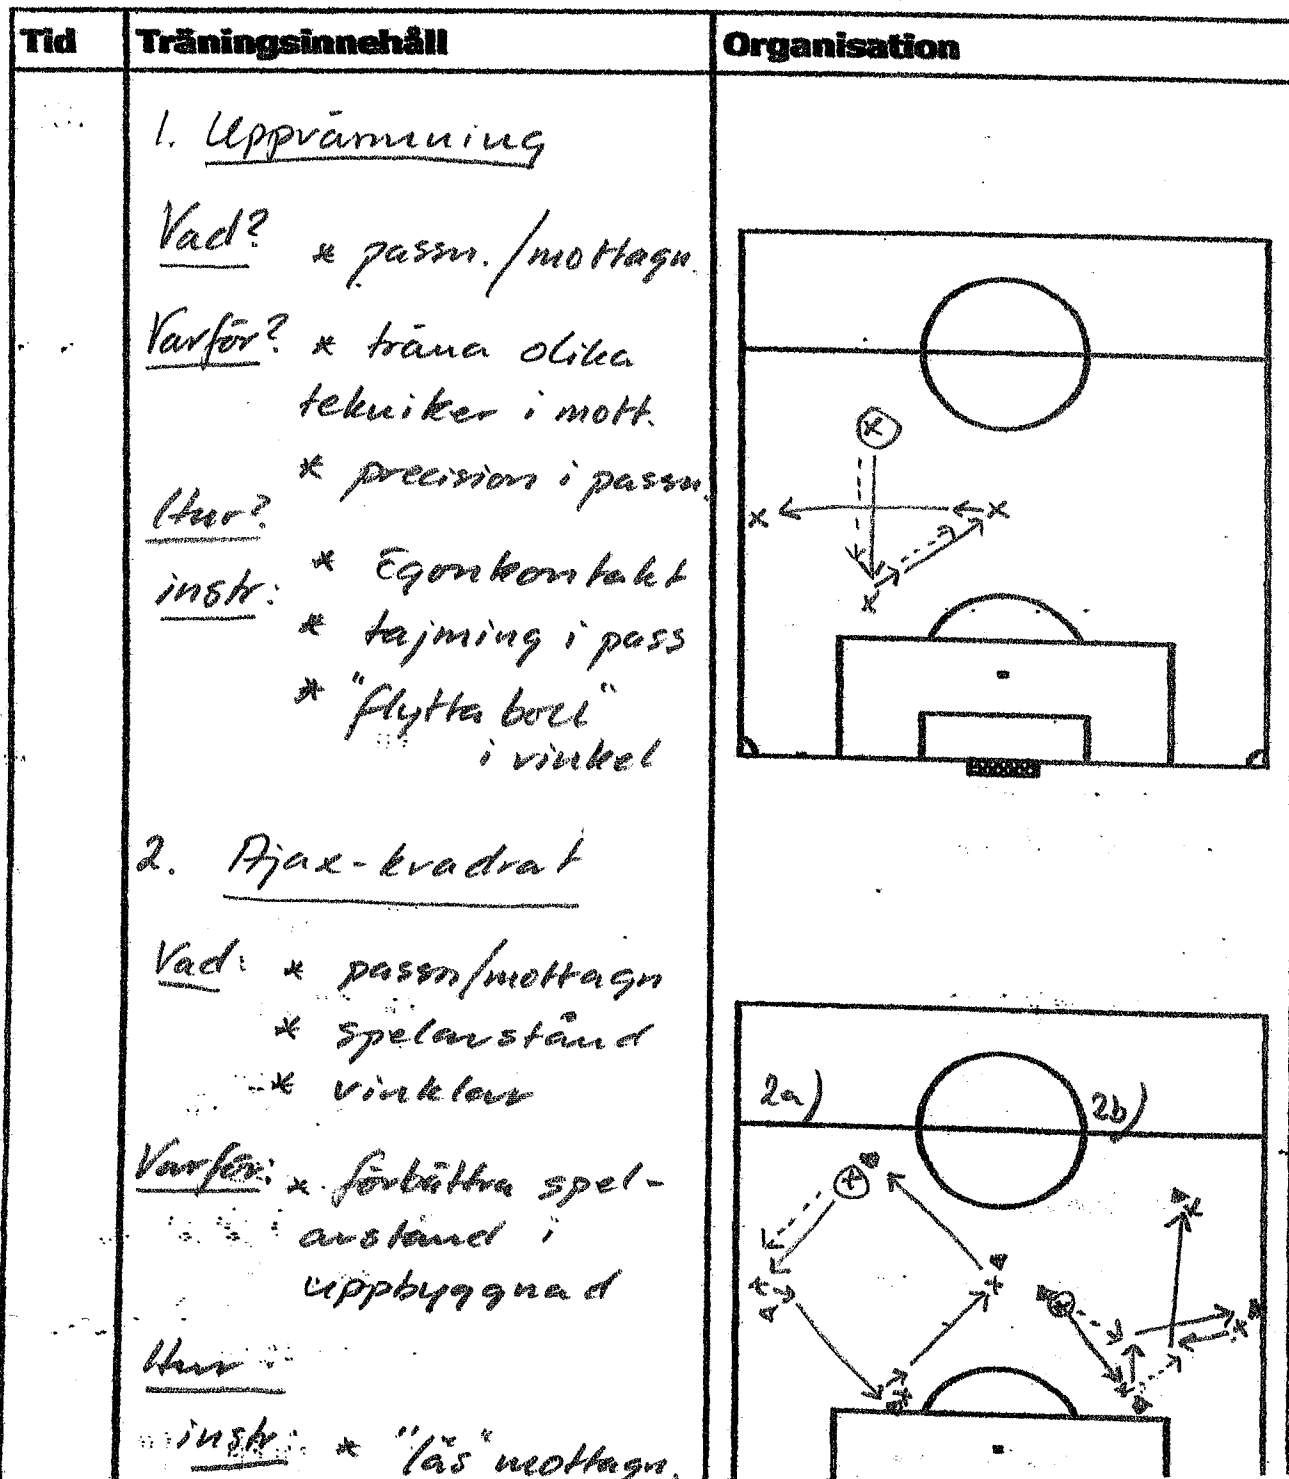 Tid Träningsinnehåll Organisation
1. Uppvärmning
Vad? * passn./mottagn.
Varför? * träna olika
tekniker i mott.
* precision i passn.
Hur?
instr: * Ögonkontakt
* tajming i pass
* "flytta boll"
i vinkel
2. Ajax-kvadrat
Vad: * passn/mottagn
* spelavstånd
* vinklar
Varför: * förbättra spel-
avstånd i
uppbyggnad
Hur:
instr: * "läs" mottagn.
2a) 2b)